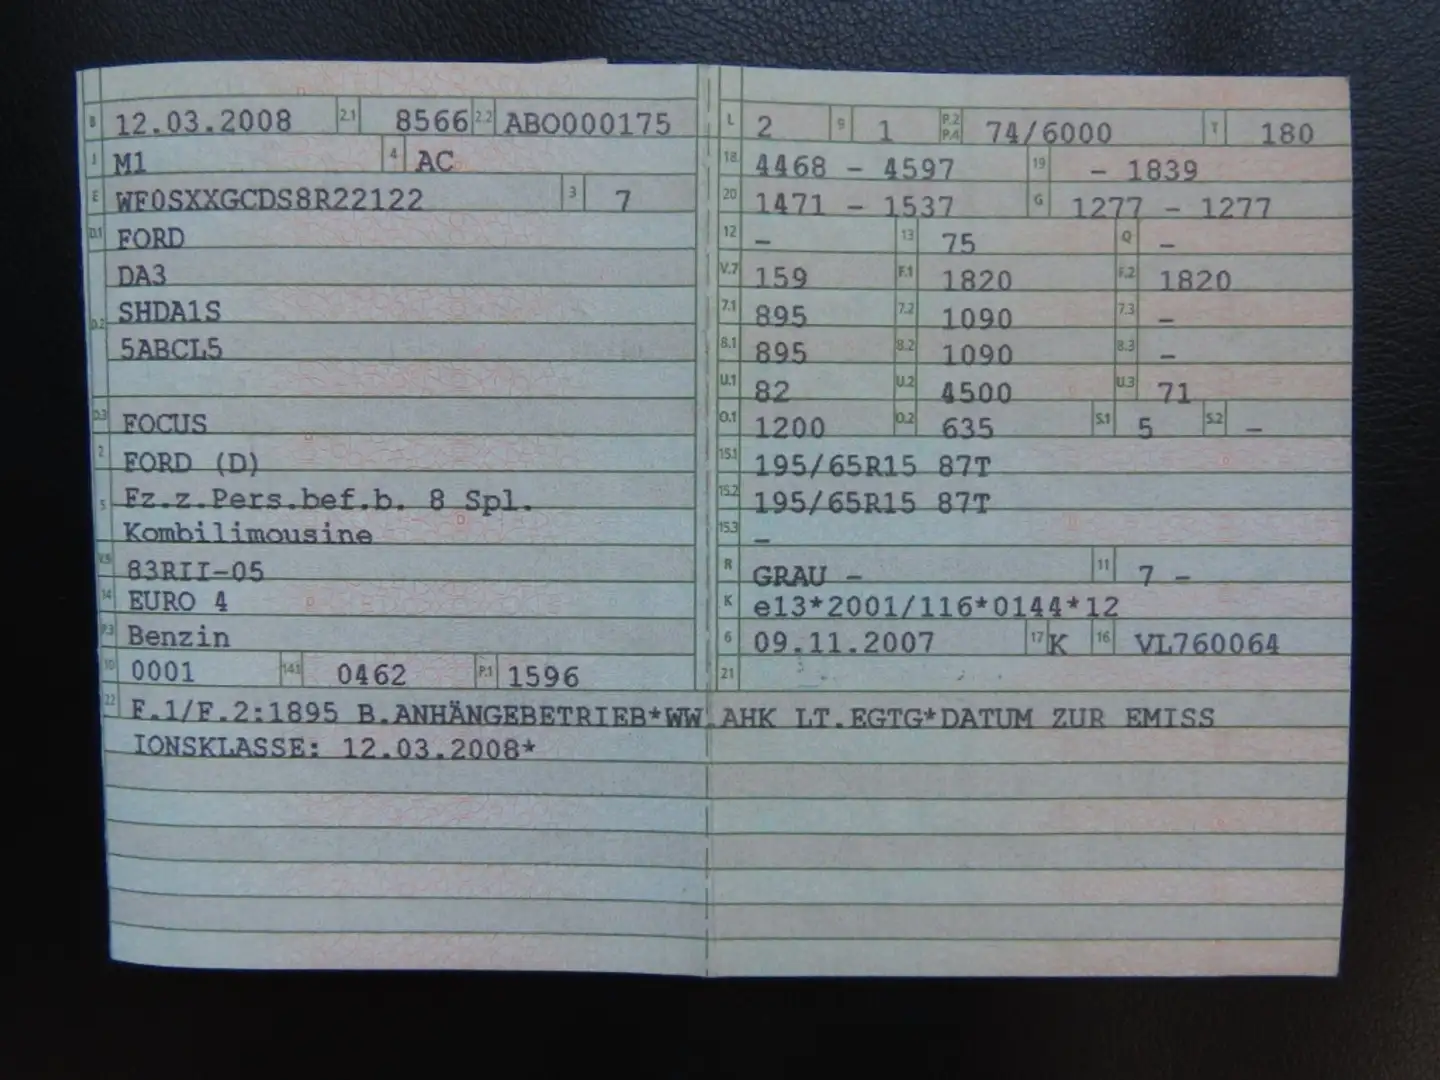 B 12.03.2008 2.1 8566 2.2 ABO000175
J M1 4 AC
E WF0SXXGCDS8R22122 3 7
D.1 FORD
DA3
D.2 SHDA1S
5ABCL5
D.3 FOCUS
2 FORD (D)
5 Fz.z.Pers.bef.b. 8 Spl.
Kombilimousine
V.9 83RII-05
14 EURO 4
P.3 Benzin
10 0001 14.1 0462 P.1 1596
L 2 9 1 P.2 P.4 74/6000 T 180
18 4468 - 4597 19 - 1839
20 1471 - 1537 G 1277 - 1277
12 - 13 75 Q -
V.7 159 F.1 1820 F.2 1820
7.1 895 7.2 1090 7.3 -
8.1 895 8.2 1090 8.3 -
U.1 82 U.2 4500 U.3 71
O.1 1200 O.2 635 S.1 5 S.2 -
15.1 195/65R15 87T
15.2 195/65R15 87T
15.3 -
R GRAU - 11 7 -
K e13*2001/116*0144*12
6 09.11.2007 17 K 16 VL760064
21
22 F.1/F.2:1895 B.ANHÄNGEBETRIEB*WW.AHK LT.EGTG*DATUM ZUR EMISS
IONSKLASSE: 12.03.2008*